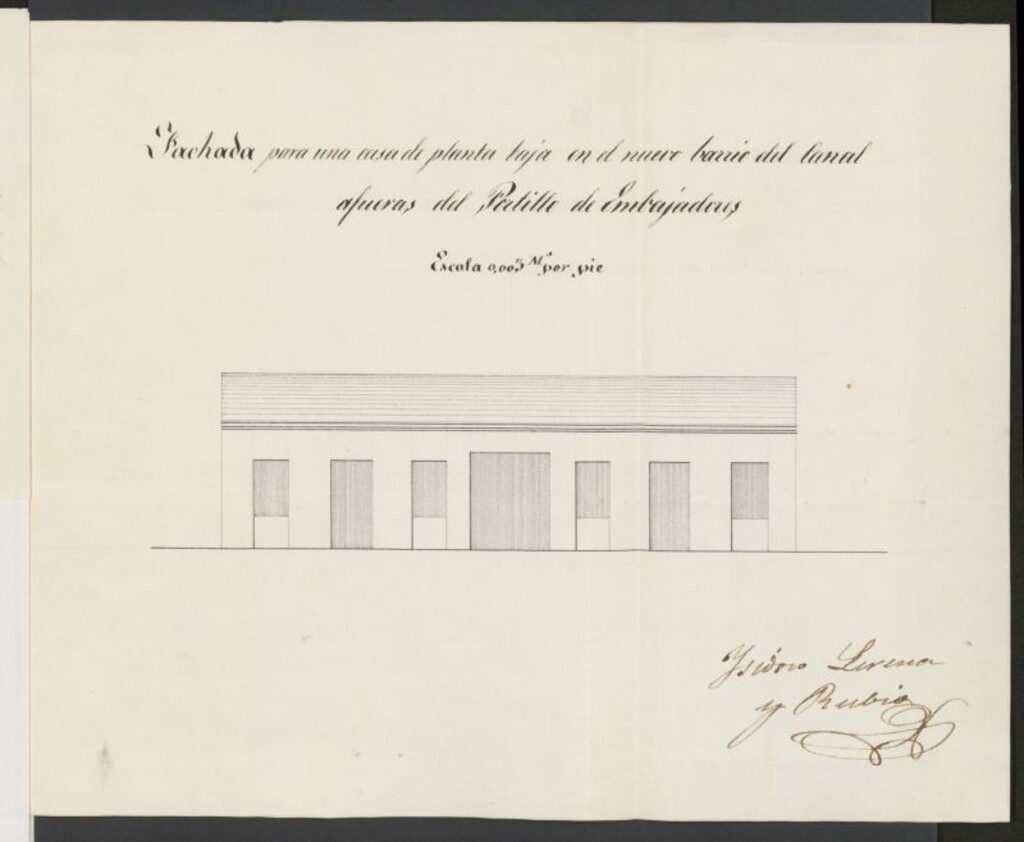 Fachada para una casa de planta baja en el nuevo barrio del Canal
afueras del Portillo de Embajadores
Escala 0,003 Mº por pie
Isidoro Lerena
y Rubio